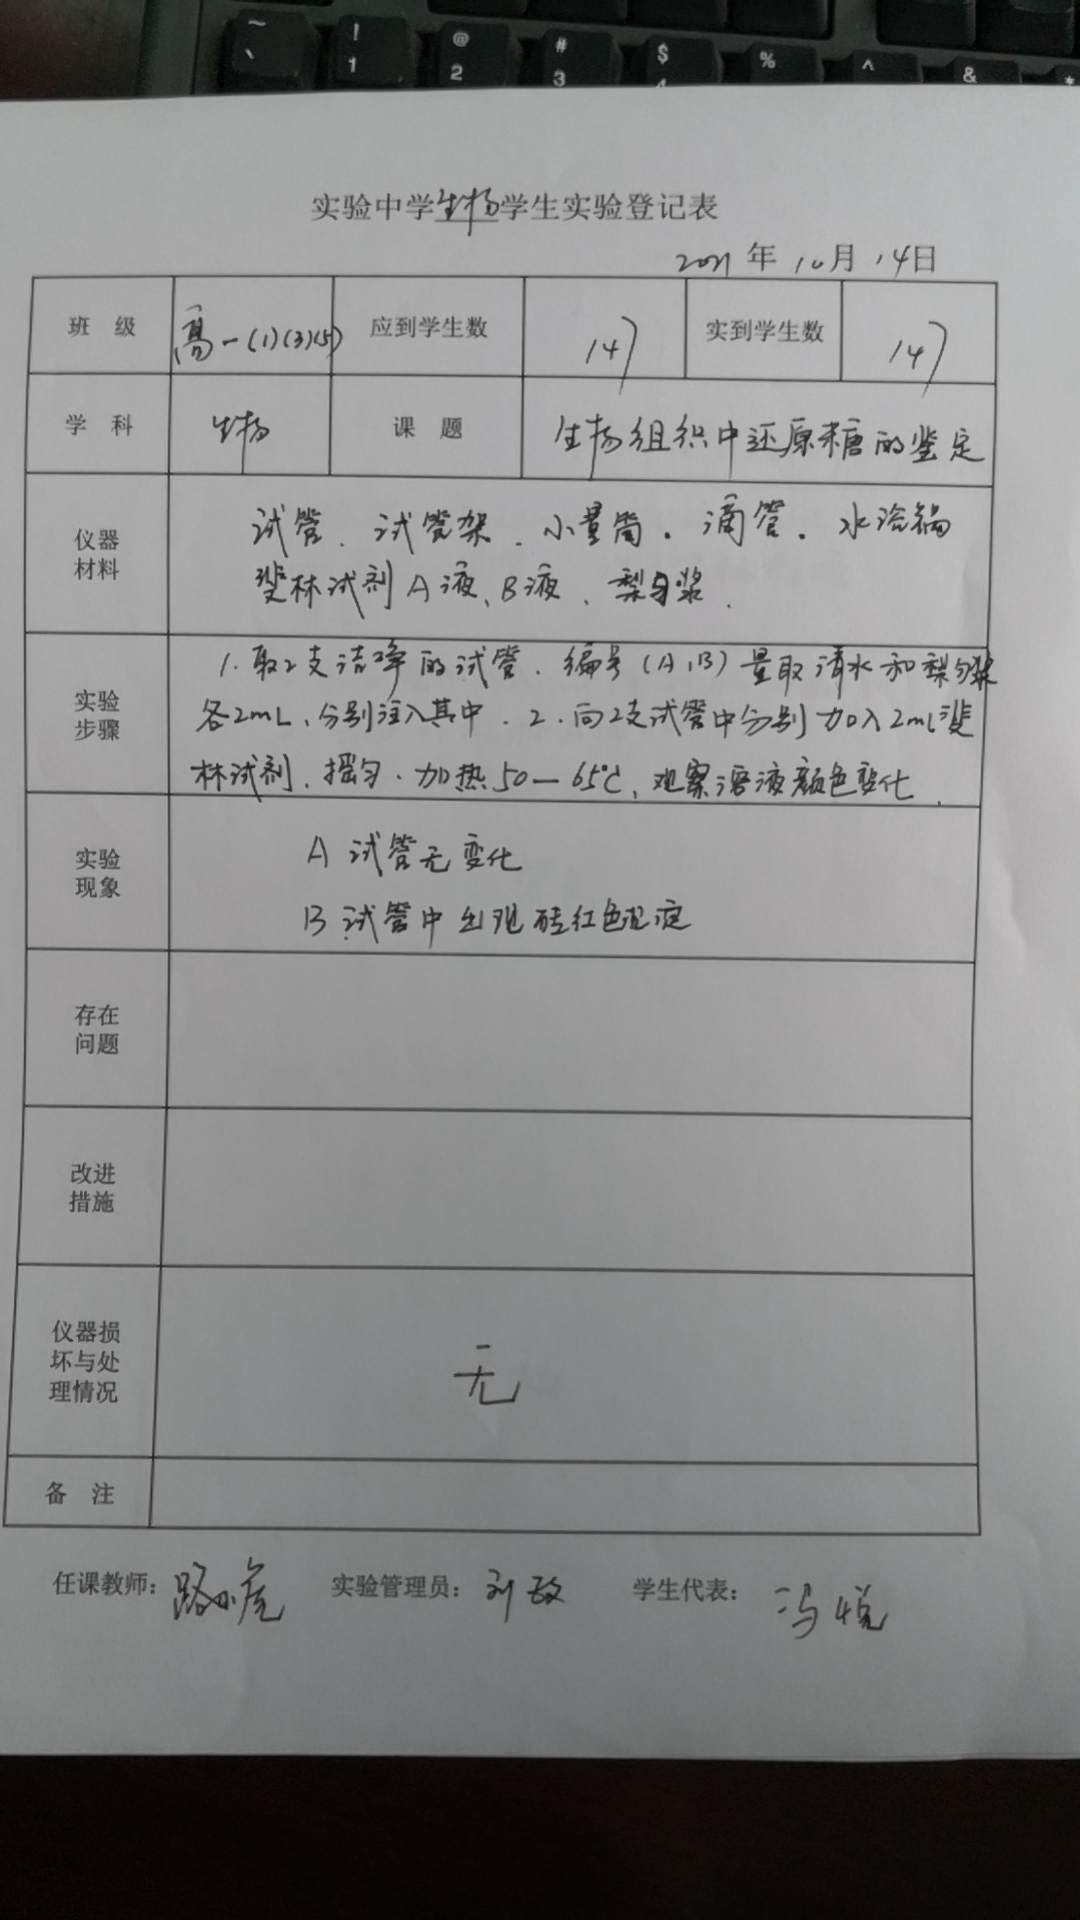 ~ ! @ # $ % ^ & *
、 1 2 3 4
实验中学生物学生实验登记表
2021年10月14日
班 级 高一(1)(3)(5) 应到学生数 147 实到学生数 147
学 科 生物 课 题 生物组织中还原糖的鉴定
仪器材料
试管、试管架、小量筒、滴管、水浴锅
斐林试剂A液、B液、梨匀浆.
实验步骤
1.取2支洁净的试管、编号(A,B)量取清水和梨匀浆
各2mL、分别注入其中.2.向2支试管中分别加入2mL斐
林试剂、摇匀.加热50—65℃、观察溶液颜色变化.
实验现象
A 试管无变化
B 试管中出现砖红色沉淀
存在问题
改进措施
仪器损坏与处理情况
无
备 注
任课教师: 路小虎 实验管理员: 刘政 学生代表: 冯悦